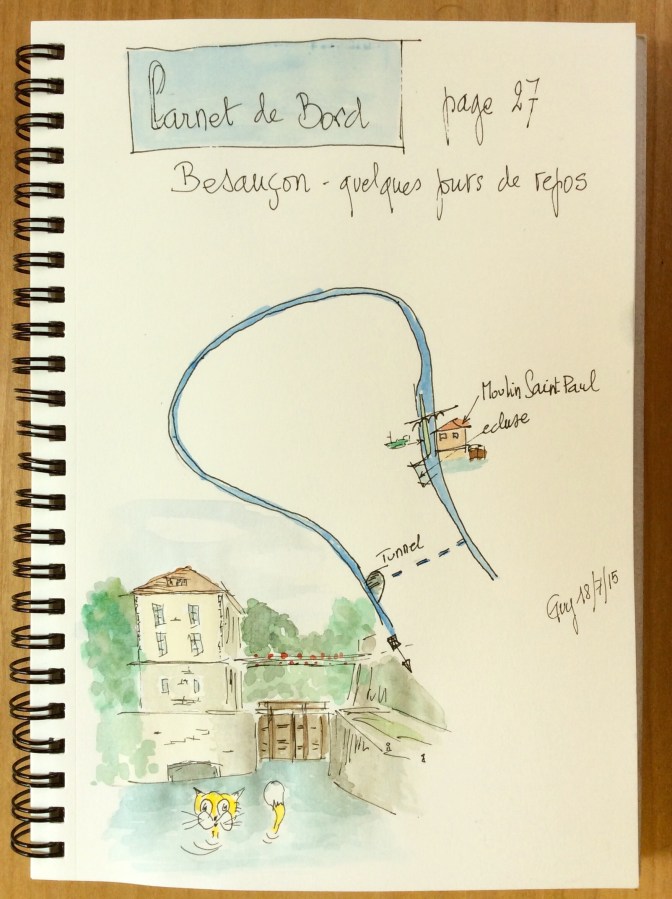 Carnet de Bord
page 27
Besançon - quelques jours de repos
Moulin Saint Paul
ecluse
Tunnel
Guy 18/7/15